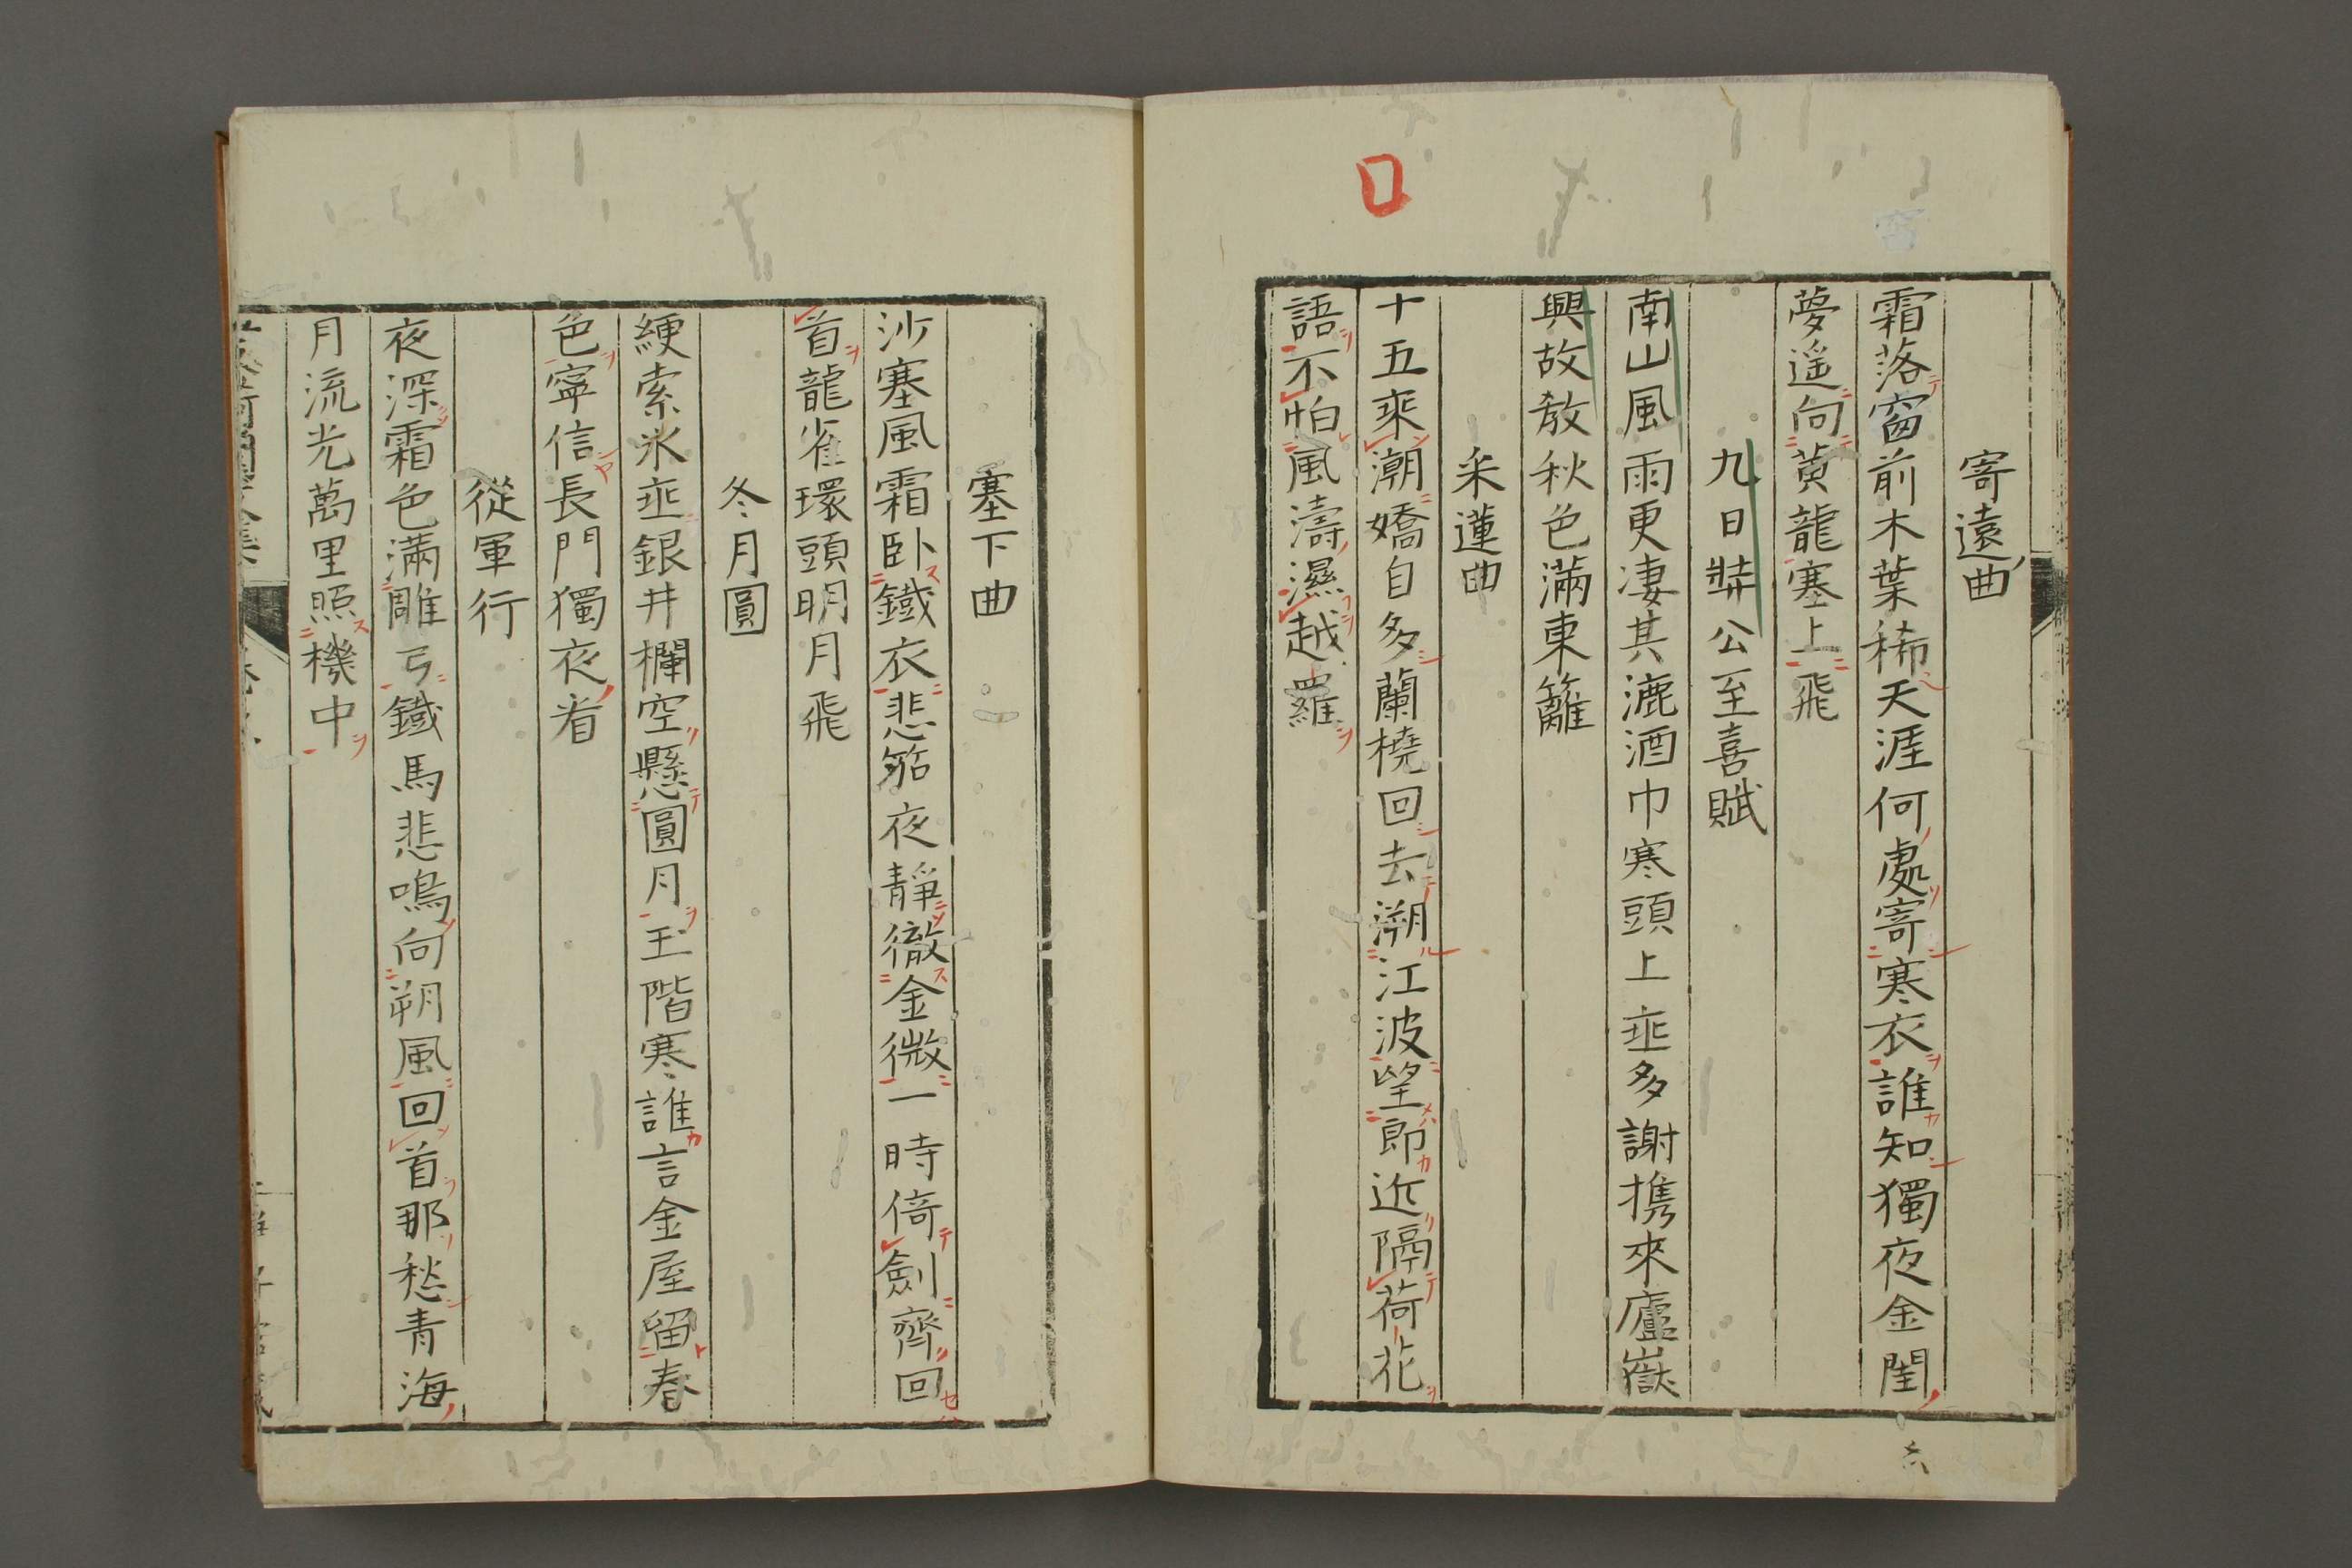 寄遠曲
霜落窗前木葉稀天涯何處寄寒衣誰知獨夜金閨
夢遥向黄龍塞上飛
九日弉公至喜賦
南山風雨更凄其漉酒巾寒頭上垂多謝携來廬嶽
興故教秋色滿東籬
采蓮曲
十五乘潮嬌自多蘭橈回去溯江波望郎近隔荷花
語不怕風濤濕越羅
塞下曲
沙塞風霜卧鐵衣悲笳夜靜徹金微一時倚劍齊回
首龍雀環頭明月飛
冬月圓
綆索氷垂銀井欄空懸圓月玉階寒誰言金屋留春
色寧信長門獨夜看
從軍行
夜深霜色滿雕弓鐵馬悲鳴向朔風回首那愁青海
月流光萬里照機中